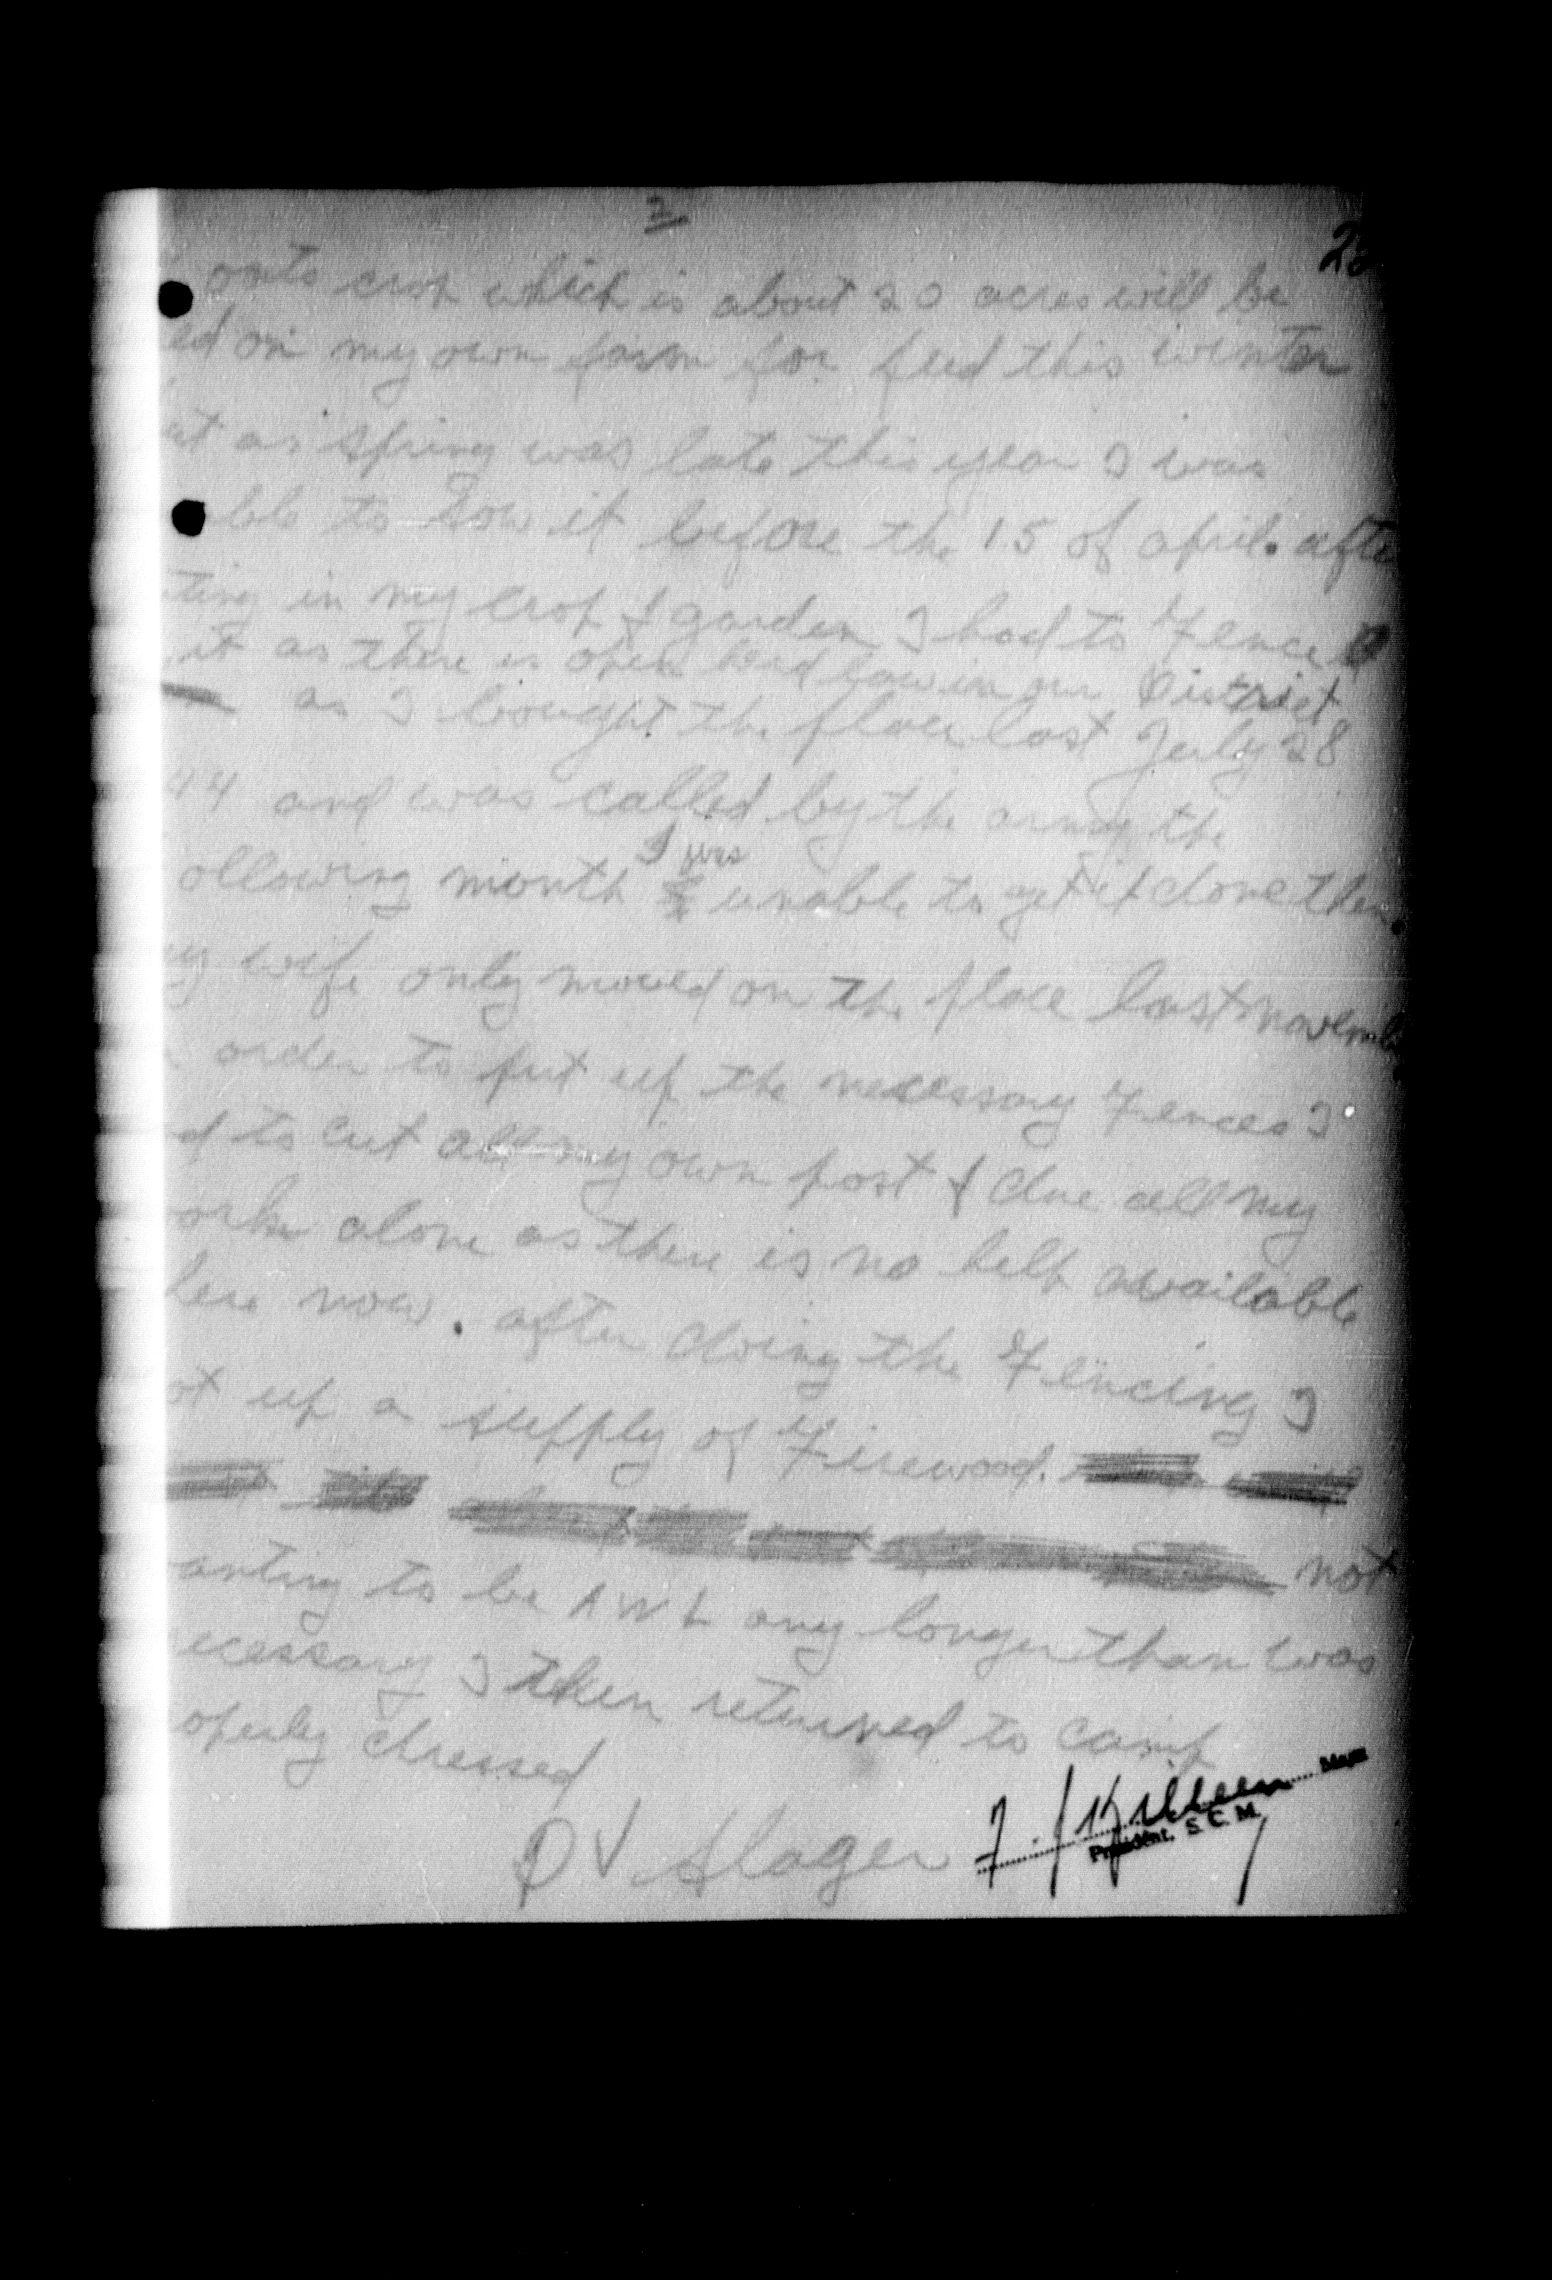 2
23
oats crop which is about 20 acres will be
ed on my own farm for feed this winter
ut as spring was late this year I was
able to sow it before the 15 of april. afte
ting in my crop & garden I had to Fence
it as there is open herd law in our District
as I bought the place last July 28
44 and was called by the army the
I was
ollowing month unable to get it done then.
my wife only moved on the place last novemb
order to put up the necessary Fences I
d to cut all my own post & doe all my
ork alone as there is no help available
here now. after doing the Fencing I
ot up a supply of Firewood.
not
anting to be AWL any longer than was
ecessary I then returned to camp
operly dressed
D V Slager
F. J. Killeen Major
President. S. C. M.